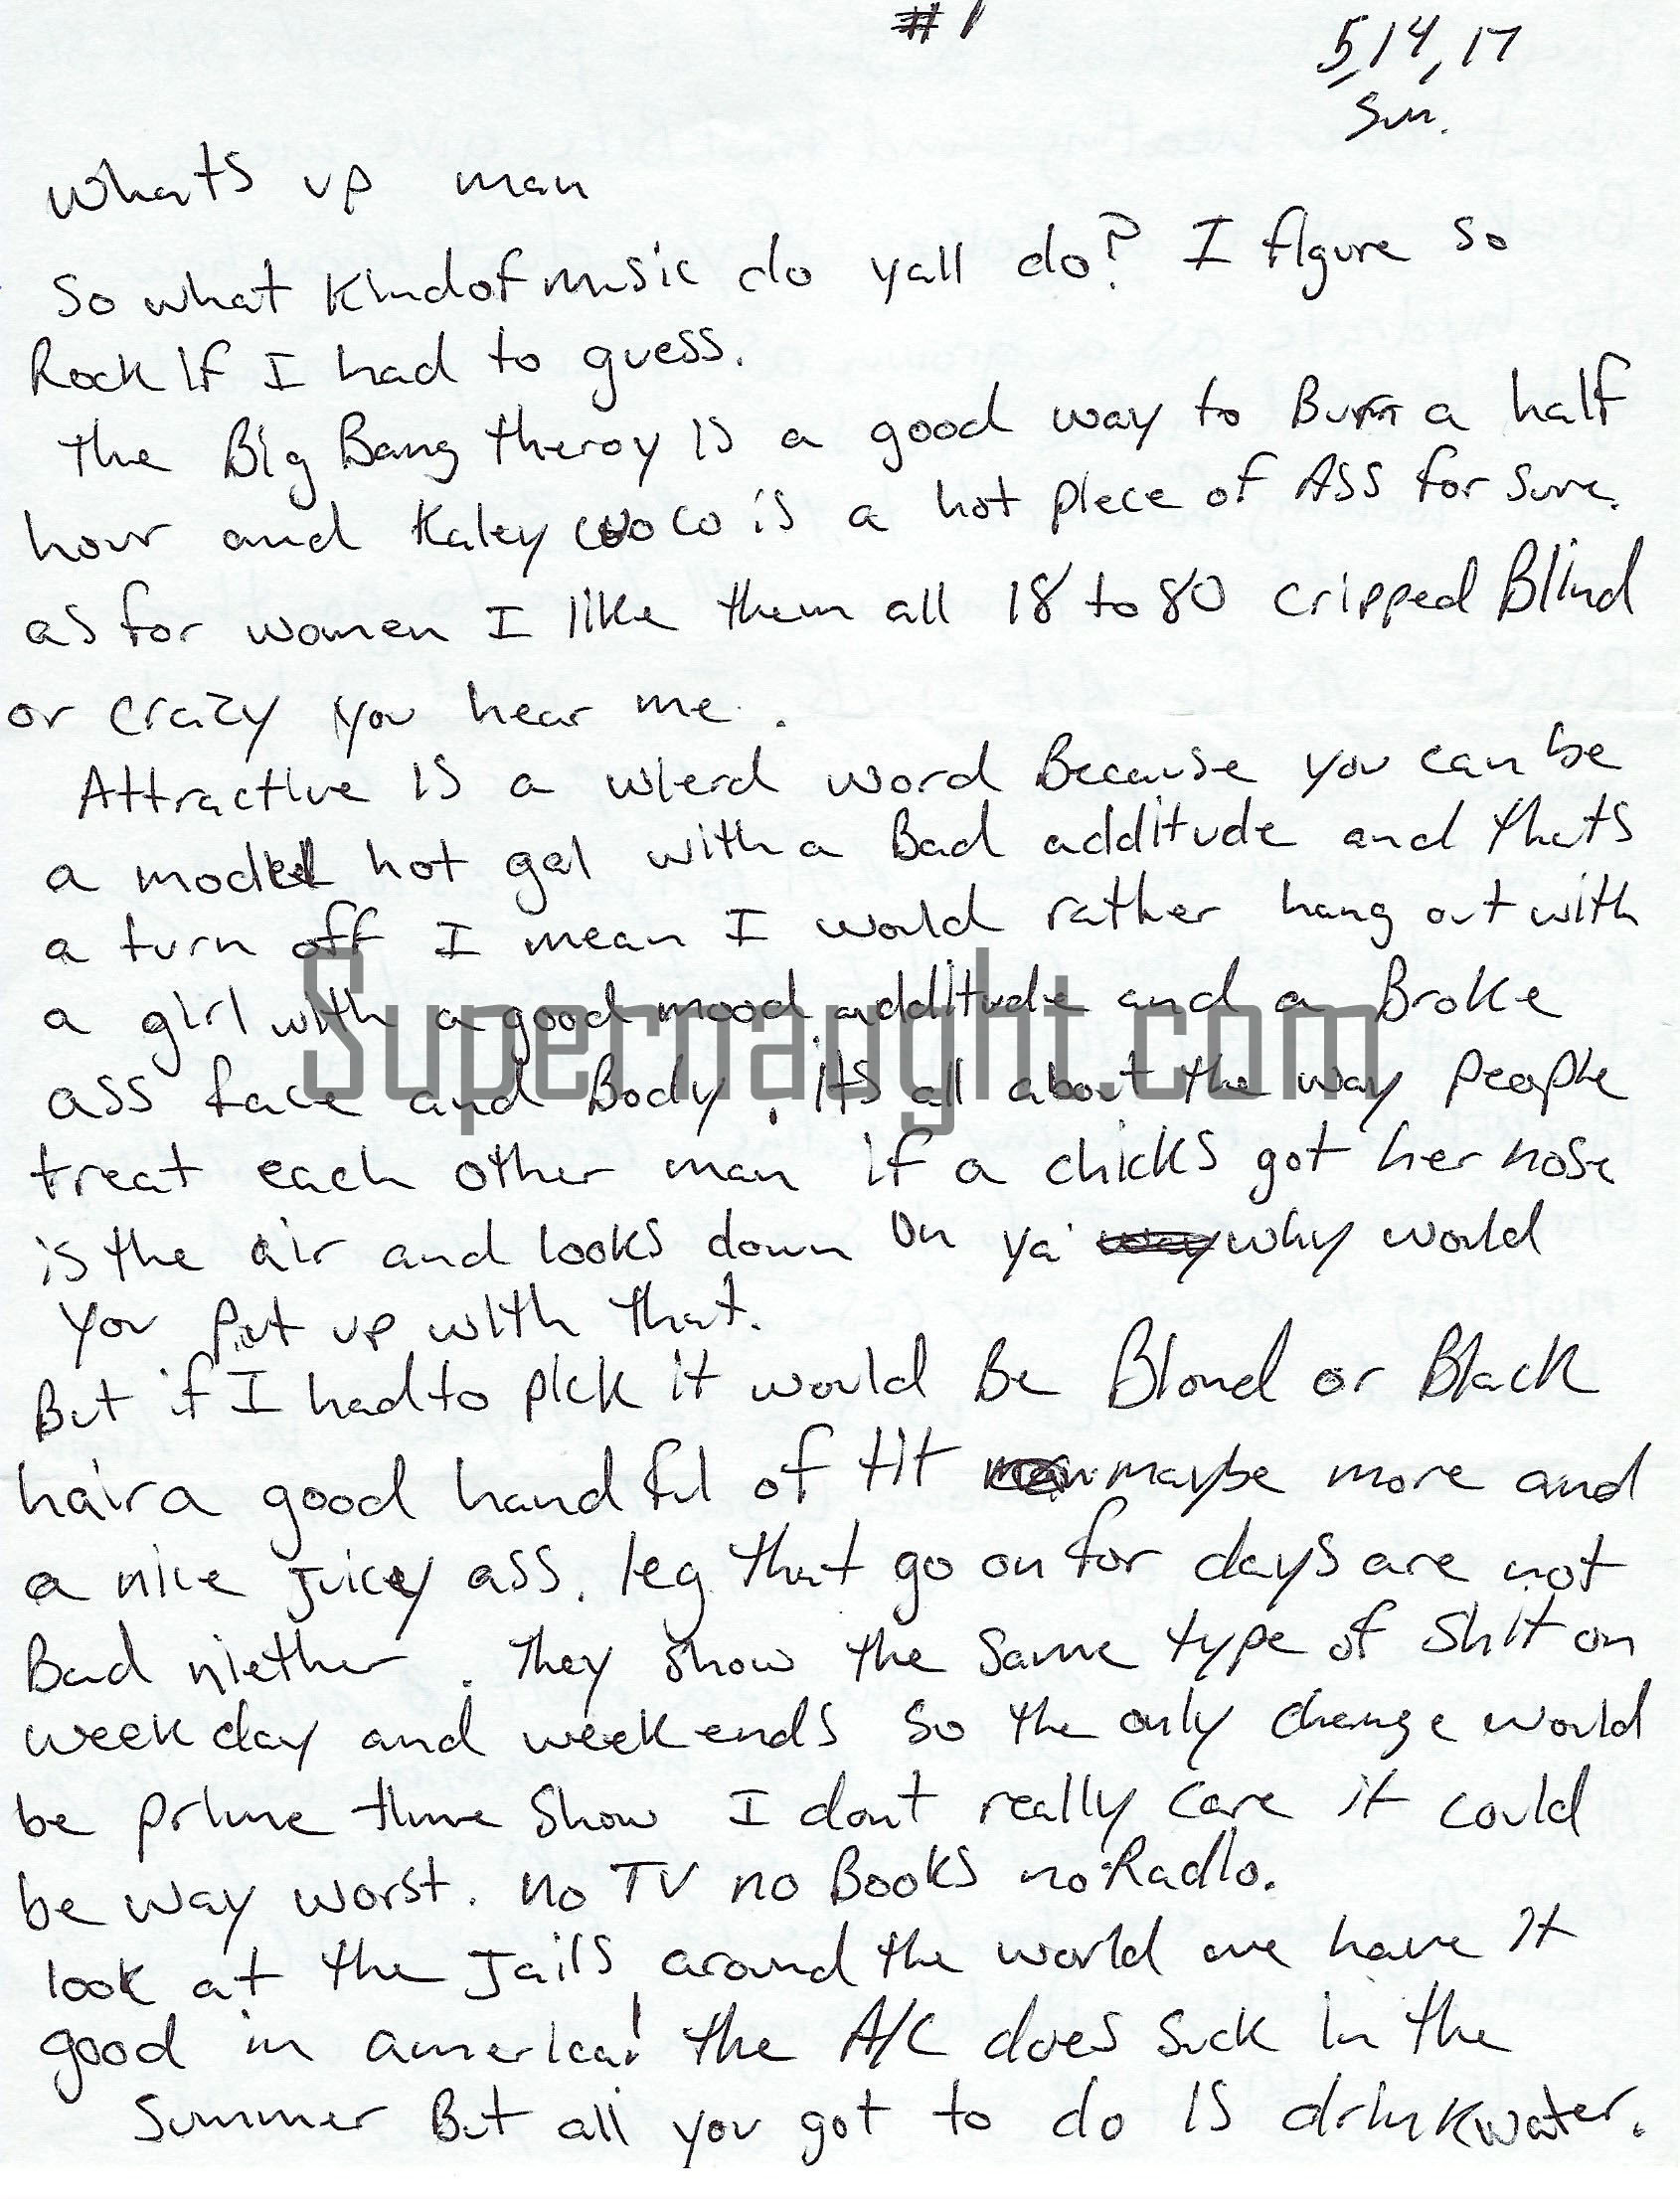 #1
5,14,17
Sun.
whats up man
So what kindof music do yall do? I figure so
Rock if I had to guess.
the Big Bang theroy is a good way to Burn a half
hour and Kaley cuoco is a hot piece of ASS for sure.
as for women I like them all 18 to 80 cripped Blind
or crazy you hear me.
Attractive is a wierd word Because you can be
a model hot gal with a Bad additude and thats
a turn off I mean I would rather hang out with
a girl with a good mood additude and a Broke
ass face and Body. its all about the way people
treat each other man if a chicks got her nose
is the air and looks down on ya' why would
you put up with that.
But if I had to pick it would Be Blond or Black
hair a good handful of tit maybe more and
a nice juicey ass. leg that go on for days are not
Bad niether. They show the same type of shit on
week day and weekends so the only change would
be prime time show I dont really care it could
be way worst. no TV no Books no Radio.
look at the Jails around the world we have it
good in america! the A/C does suck in the
Summer But all you got to do is drink water.
Supernaught.com